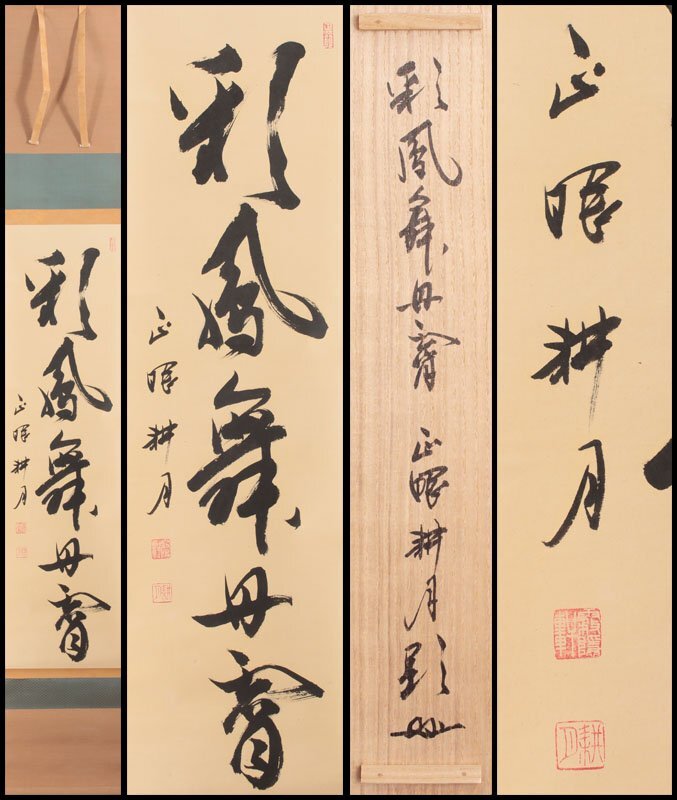 彩鳳舞丹霄
正眼耕月
彩鳳舞丹霄
正眼耕月
耕月
彩鳳舞丹霄 正眼耕月題
正眼耕月
耕月